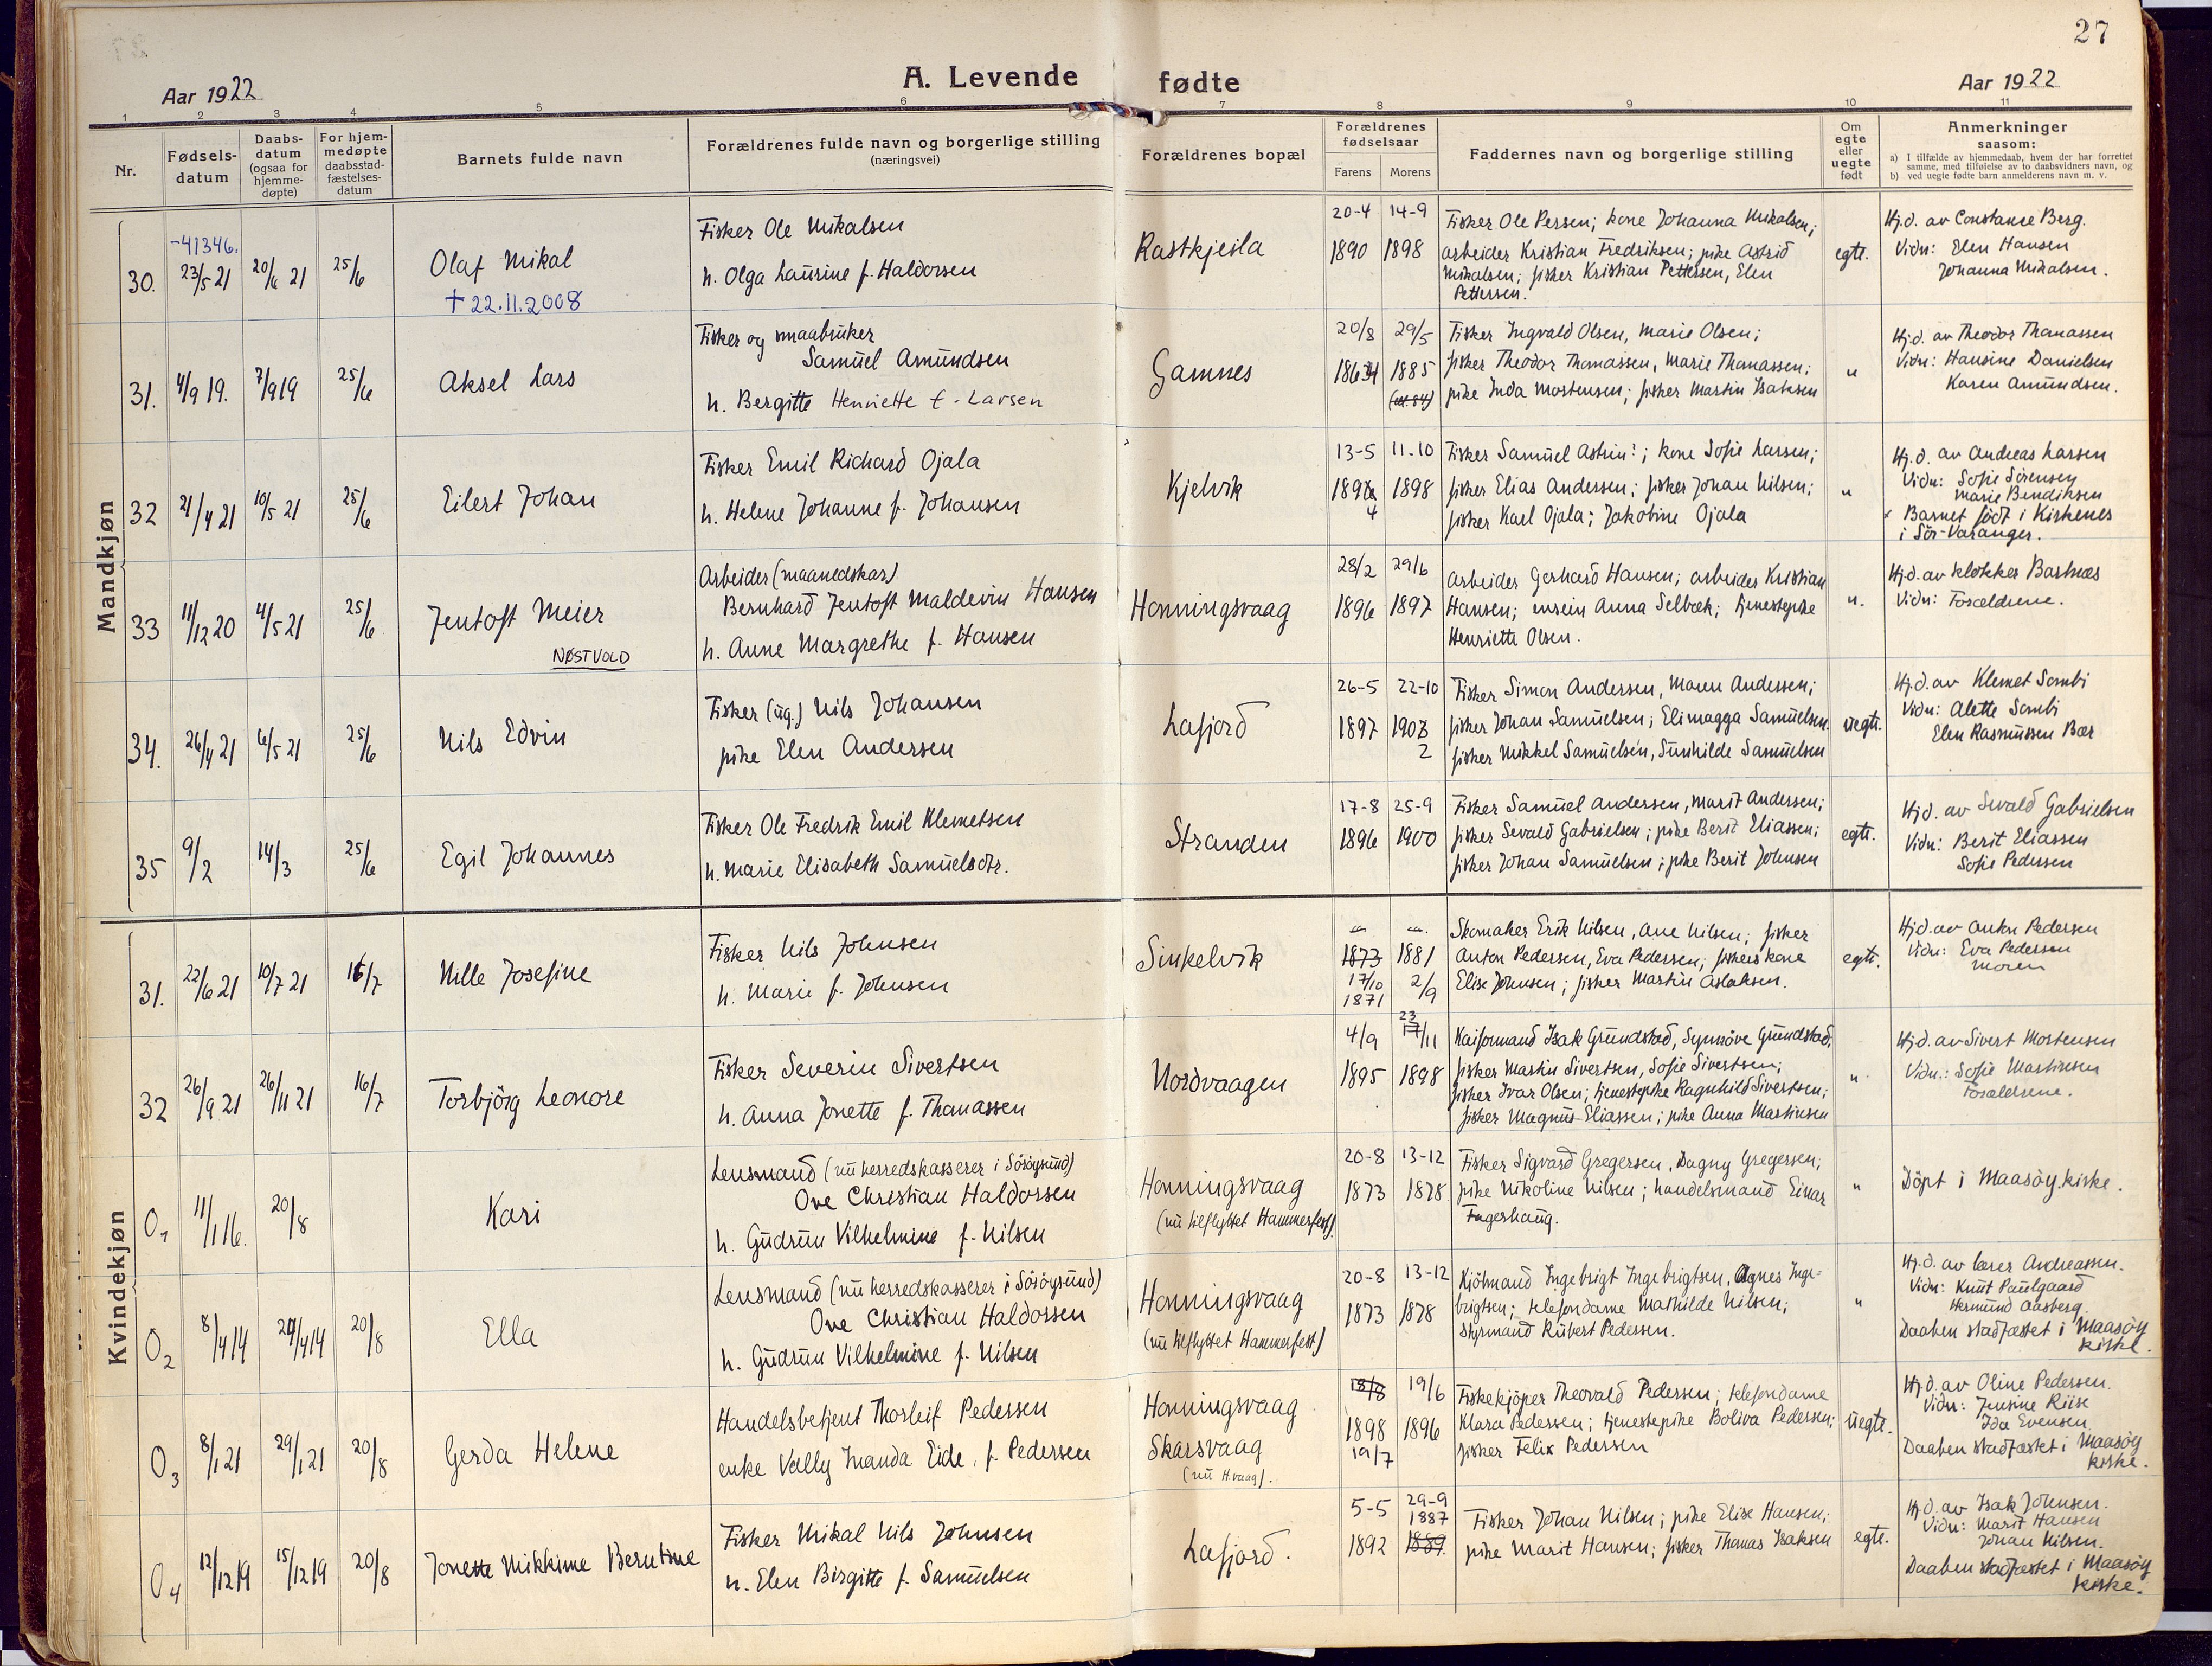 27
Aar 1922
A. Levende fødte
Aar 1922
1 2 3 4 5 6 7 8 9 10 11
Nr.
Fødsels-
datum
Daabs-
datum
(ogsaa for
hjemme-
døpte)
For hjem-
medøpte
daabsstad-
fæstelses-
datum
Barnets fulde navn
Forældrenes fulde navn og borgerlige stilling
(næringsvei)
Forældrenes bopæl
Forældrenes
fødselsaar
Farens Morens
Faddernes navn og borgerlige stilling
Om
egte
eller
uegte
født
Anmerkninger
saasom:
a) I tilfælde av hjemmedaab, hvem der har forrettet
samme, med tilføielse av to daabsvidners navn, og
b) ved uegte fødte barn anmelderens navn m. v.
Mandkjøn
30. -41346. 23/5 21 20/6 21 25/6
Olaf Mikal
+ 22.11.2008
Fisker Ole Mikalsen
h. Olga Laurine f. Haldorsen
Rastkjeila
20-4 14-9
1890 1898
Fisker Ole Persen; kone Johanna Mikalsen;
arbeider Kristian Fredriksen; pike Astrid
Mikalsen; fisker Kristian Pettersen, Elen
Pettersen.
egte.
Hj.d. av Constanse Berg.
Vidn: Elen Hansen
Johanna Mikalsen.
31. 4/9 19. 7/9 19 25/6
Aksel Lars
Fisker og smaabruker
Samuel Amundsen
h. Bergitte Henriette f. Larsen
Gamnes
20/8 29/5
1864 1885
Fisker Ingvald Olsen, Marie Olsen;
fisker Theodor Thomassen, Marie Thomassen;
pike Inda Mortensen; fisker Martin Isaksen
"
Hj.d. av Theodor Thomassen
Vidn: Hansine Danielsen
Karen Amundsen.
32 21/4 21 10/5 21 25/6
Eilert Johan
Fisker Emil Richard Ojala
h. Helene Johanne f. Johansen
Kjelvik
13-5 11-10
1894 1898
Fisker Samuel Astrin?; kone Sofie Larsen;
fisker Elias Andersen; fisker Johan Nilsen;
fisker Karl Ojala; Jakobine Ojala
"
Hj.d. av Andreas Larsen
Vidn: Sofie Sörensen
Marie Bendiksen
x Barnet född i Kirkenes
i Sör-Varanger.
33 11/12 20 4/5 21 25/6
Jentoft Meier
NØSTVOLD
Arbeider (maanedskar)
Bernhard Jentoft Maldevin Hansen
h. Anne Margrethe f. Hansen
Honningsvaag
28/2 29/6
1896 1897
Arbeider Gerhard Hansen; arbeider Kristian
Hansen; Anna Selbæk; tjenestepike
Henriette Olsen.
".
Hj.d. av klokker Barlnæs
Vidn: Forældrene.
34. 26/4 21 6/5 21 25/6
Nils Edvin
Fisker (ug.) Nils Johansen
pike Elen Andersen
Lafjord
26-5 22-10
1897 1902
Fisker Simon Andersen, Maren Andersen;
fisker Johan Samuelsen; Elimagga Samuelsen.
fisker Mikkel Samuelsen, Sunhilde Samuelsen
uegte.
Hj.d. av Klemet Sombi
Vidn: Alette Sombi
Elen Rasmussen Bær
35 9/2 14/3 25/6
Egil Johannes
Fisker Ole Fredrik Emil Klemetsen
h. Marie Elisabeth Samuelsdtr.
Stranden
17-8 25-9
1896 1900
Fisker Samuel Andersen, Marit Andersen;
fisker Sevald Gabrielsen; pike Berit Eliassen;
fisker Johan Samuelsen; pike Berit Johnsen
egte.
Hj.d. av Sevald Gabrielsen
Vidn: Berit Eliassen
Sofie Pedersen
Kvindekjøn
31. 22/6 21 10/7 21 16/7
Nille Josefine
Fisker Nils Johnsen
h. Marie f. Johnsen
Sinkelvik
1873 1881
17/10 2/9
1871
Skomaker Erik Nilsen, Ane Nilsen; fisker
Anton Pedersen, Eva Pedersen; fiskers kone
Elise Johnsen; fisker Martin Aslaksen.
egte.
Hj.d. av Anton Pedersen
Vidn: Eva Pedersen
Moren
32 26/9 21 26/11 21 16/7
Torbjörg Leonore
Fisker Severin Sivertsen
h. Anna Jonette f. Thomassen
Nordvaagen
4/9 23/11
1895 1898
Kaiformand Isak Grundstad, Synnöve Grundstad;
fisker Martin Sivertsen, Sofie Sivertsen;
fisker Ivar Olsen; tjenestepike Ragnhild Sivertsen;
fisker Magnus Eliassen; pike Anna Martinsen
"
Hj.d. av Sivert Mortensen
Vidn.: Sofie Martinsen
Forældrene.
01 11/1 16. 20/8
Kari
Lensmand (nu herredskasserer i Sörøysund)
Ove Christian Haldorsen
h. Gudrun Vilhelmine f. Nilsen
Honningsvaag
(nu tilflyttet Hammerfest)
20-8 13-12
1873 1878
Fisker Sigvard Gregersen, Dagny Gregersen;
pike Nikoline Nilsen; handelsmand Einar
Fagerhaug.
"
Döpt i Maasöy kirke.
02 8/4 14 29/4 14 20/8
Ella
Lensmand (nu herredskasserer i Sörøysund)
Ove Christian Haldorsen
h. Gudrun Vilhelmine f. Nilsen
Honningsvaag
(nu tilflyttet Hammerfest)
20-8 13-12
1873 1878
Kjöbmand Ingebrigt Ingebrigtsen, Agnes Inge-
brigtsen; telefondame Mathilde Nilsen;
styrmand Rubert Pedersen.
"
Hj.d. av lærer Andreassen.
Vidn: Knut Paulgaard
Hermund Aasberg.
Daaben stadfæstet i Maasöy
kirke.
03 8/1 21 29/1 21 20/8
Gerda Helene
Handelsbetjent Thorleif Pedersen
enke Vally Inanda Eide, f. Pedersen
Honningsvaag
Skarsvaag
(nu H.vaag).
18/8 19/6
1898 1896
19/7
Fiskekjöper Theovald Pedersen; telefondame
Klara Pedersen; tjenestepike Boliva Pedersen;
fisker Felix Pedersen
uegte.
Hj.d. av Oline Pedersen.
Vidn: Jensine Riise
Ida Evensen.
Daaben stadfæstet i Maasöy
kirke.
04 12/12 19 15/12 19 20/8
Jonette Mikkine Berntine
Fisker Mikal Nils Johnsen
h. Elen Birgitte f. Samuelsen
Lafjord.
5-5 29-9
1887
1892 1889
Fisker Johan Nilsen; pike Elise Hansen;
pike Marit Hansen; fisker Thomas Isaksen
egte.
Hj.d. av Isak Johnsen.
Vidn: Marit Hansen
Johan Nilsen.
Daaben stadfæstet i Maasöy
kirke.